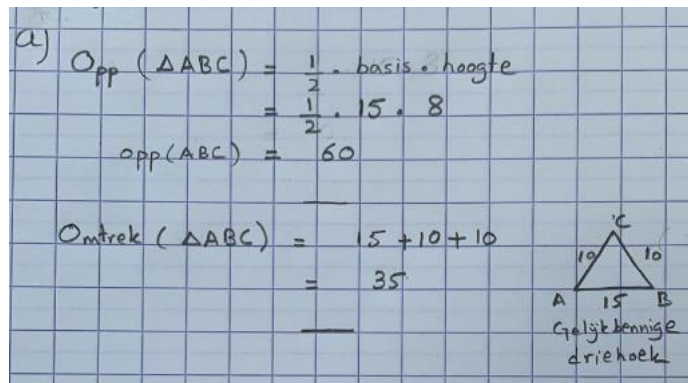 a)
Opp (△ABC) = 1/2 . basis . hoogte
= 1/2 . 15 . 8
opp(ABC) = 60
Omtrek (△ABC) = 15 + 10 + 10
= 35
C
10 10
A 15 B
Gelijkbennige
driehoek